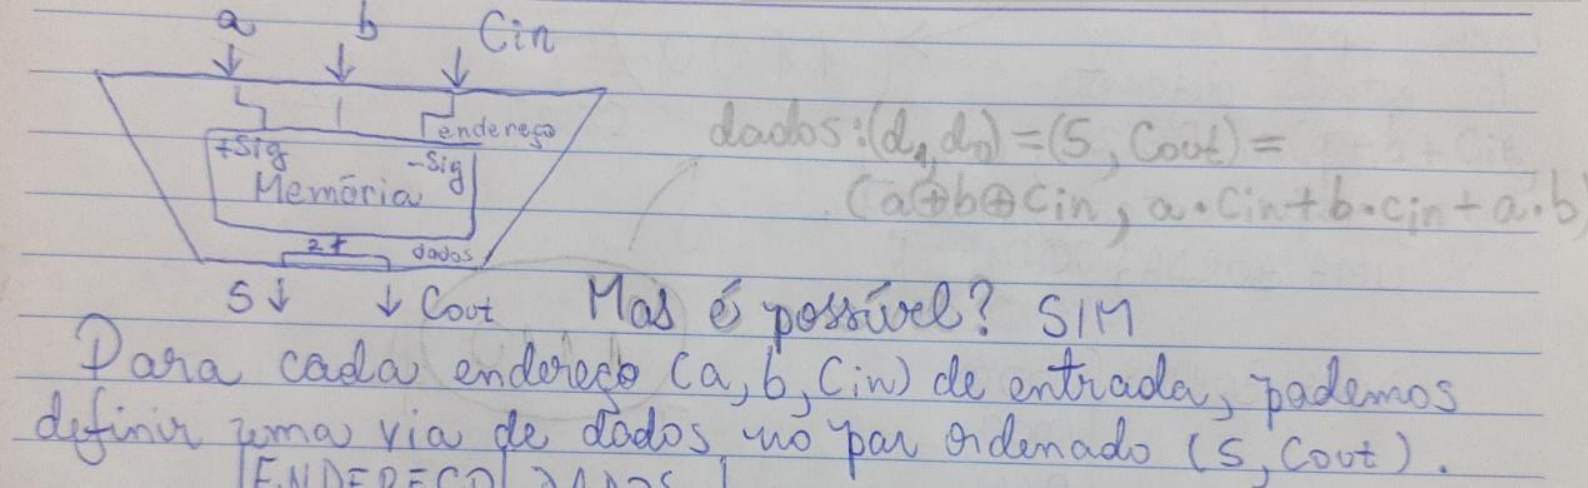 a b Cin
endereço
+Sig -Sig
Memória
2+ dados
S Cout
dados:(d1,d0)=(S, Cout)=
(a⊕b⊕Cin, a•Cin+b•cin+a•b)
Mas é possível? SIM
Para cada endereço (a, b, Cin) de entrada, podemos
definir uma via de dados no par ordenado (S, Cout).
ENDEREÇO DADOS